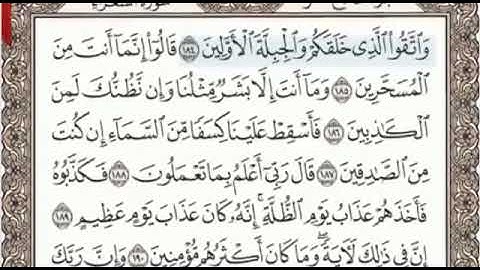 وَٱتَّقُوا۟ ٱلَّذِى خَلَقَكُمْ وَٱلْجِبِلَّةَ ٱلْأَوَّلِينَ ١٨٤ قَالُوٓا۟ إِنَّمَآ أَنتَ مِنَ
ٱلْمُسَحَّرِينَ ١٨٥ وَمَآ أَنتَ إِلَّا بَشَرٌ مِّثْلُنَا وَإِن نَّظُنُّكَ لَمِنَ
ٱلْكَـٰذِبِينَ ١٨٦ فَأَسْقِطْ عَلَيْنَا كِسَفًا مِّنَ ٱلسَّمَآءِ إِن كُنتَ
مِنَ ٱلصَّـٰدِقِينَ ١٨٧ قَالَ رَبِّىٓ أَعْلَمُ بِمَا تَعْمَلُونَ ١٨٨ فَكَذَّبُوهُ
فَأَخَذَهُمْ عَذَابُ يَوْمِ ٱلظُّلَّةِ ۚ إِنَّهُۥ كَانَ عَذَابَ يَوْمٍ عَظِيمٍ ١٨٩
إِنَّ فِى ذَٰلِكَ لَـَٔايَةً ۖ وَمَا كَانَ أَكْثَرُهُم مُّؤْمِنِينَ ١٩٠ وَإِنَّ رَبَّكَ